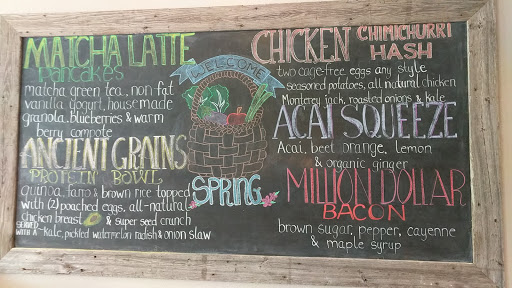 MATCHA LATTE
pancakes
matcha green tea, non fat
vanilla yogurt, housemade
granola, blueberries & warm
berry compote
ANCIENT GRAINS
PROTEIN BOWL
quinoa, farro & brown rice topped
with (2) poached eggs, all-natural
chicken breast & super seed crunch
SERVED WITH A ~ Kale, pickled watermelon radish & onion slaw
WELCOME
SPRING
CHICKEN CHIMICHURRI
HASH
two cage-free eggs any style
seasoned potatoes, all natural chicken
Monterey jack, roasted onions & kale
ACAI SQUEEZE
Acai, beet orange, lemon
& organic ginger
MILLION DOLLAR
BACON
brown sugar, pepper, cayenne
& maple syrup